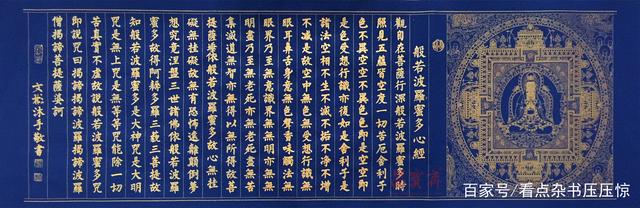 般若波羅蜜多心經
觀自在菩薩行深般若波羅蜜多時
照見五蘊皆空度一切苦厄舍利子
色不異空空不異色色即是空空即
是色受想行識亦復如是舍利子是
諸法空相不生不滅不垢不淨不增
不減是故空中無色無受想行識無
眼耳鼻舌身意無色聲香味觸法無
眼界乃至無意識界無無明亦無無
明盡乃至無老死亦無老死盡無苦
集滅道無智亦無得以無所得故菩
提薩埵依般若波羅蜜多故心無挂
礙無挂礙故無有恐怖遠離顛倒夢
想究竟涅槃三世諸佛依般若波羅
蜜多故得阿耨多羅三藐三菩提故
知般若波羅蜜多是大神咒是大明
咒是無上咒是無等等咒能除一切
苦真實不虛故說般若波羅蜜多咒
即說咒曰揭諦揭諦波羅揭諦波羅
僧揭諦菩提薩婆訶
沐手敬書
百家号/看点杂书压压惊